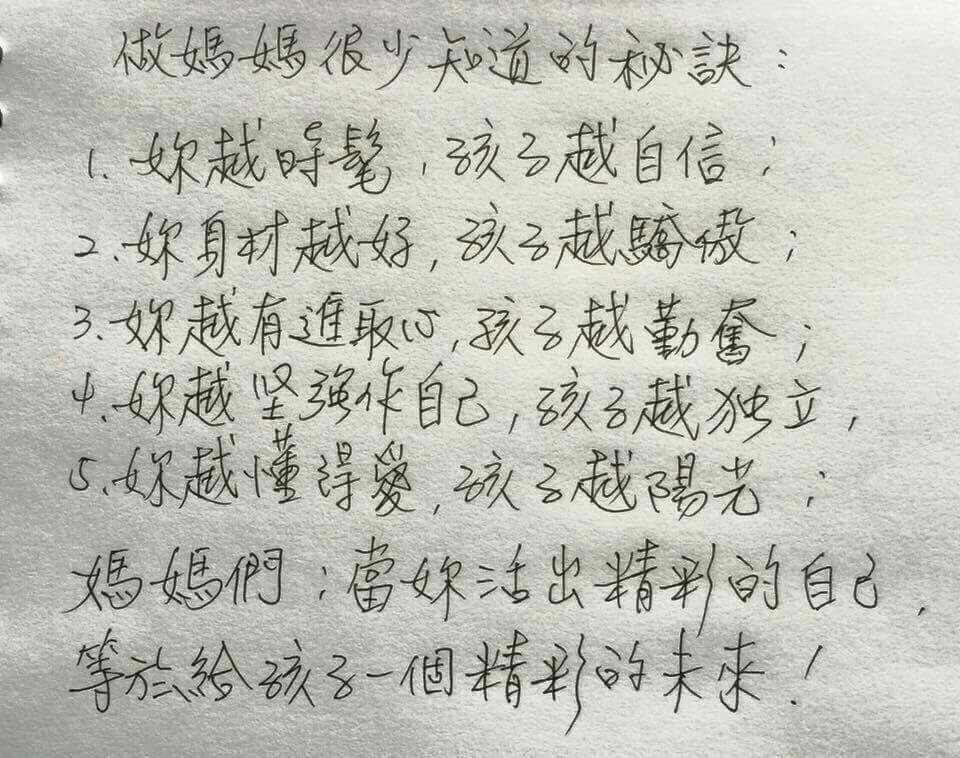 做媽媽很少知道的秘訣：
1. 妳越時髦，孩子越自信；
2. 妳身材越好，孩子越驕傲；
3. 妳越有進取心，孩子越勤奮；
4. 妳越坚強作自己，孩子越独立，
5. 妳越懂得愛，孩子越陽光；
媽媽們：當妳活出精彩的自己，
等於給孩子一個精彩的未來！